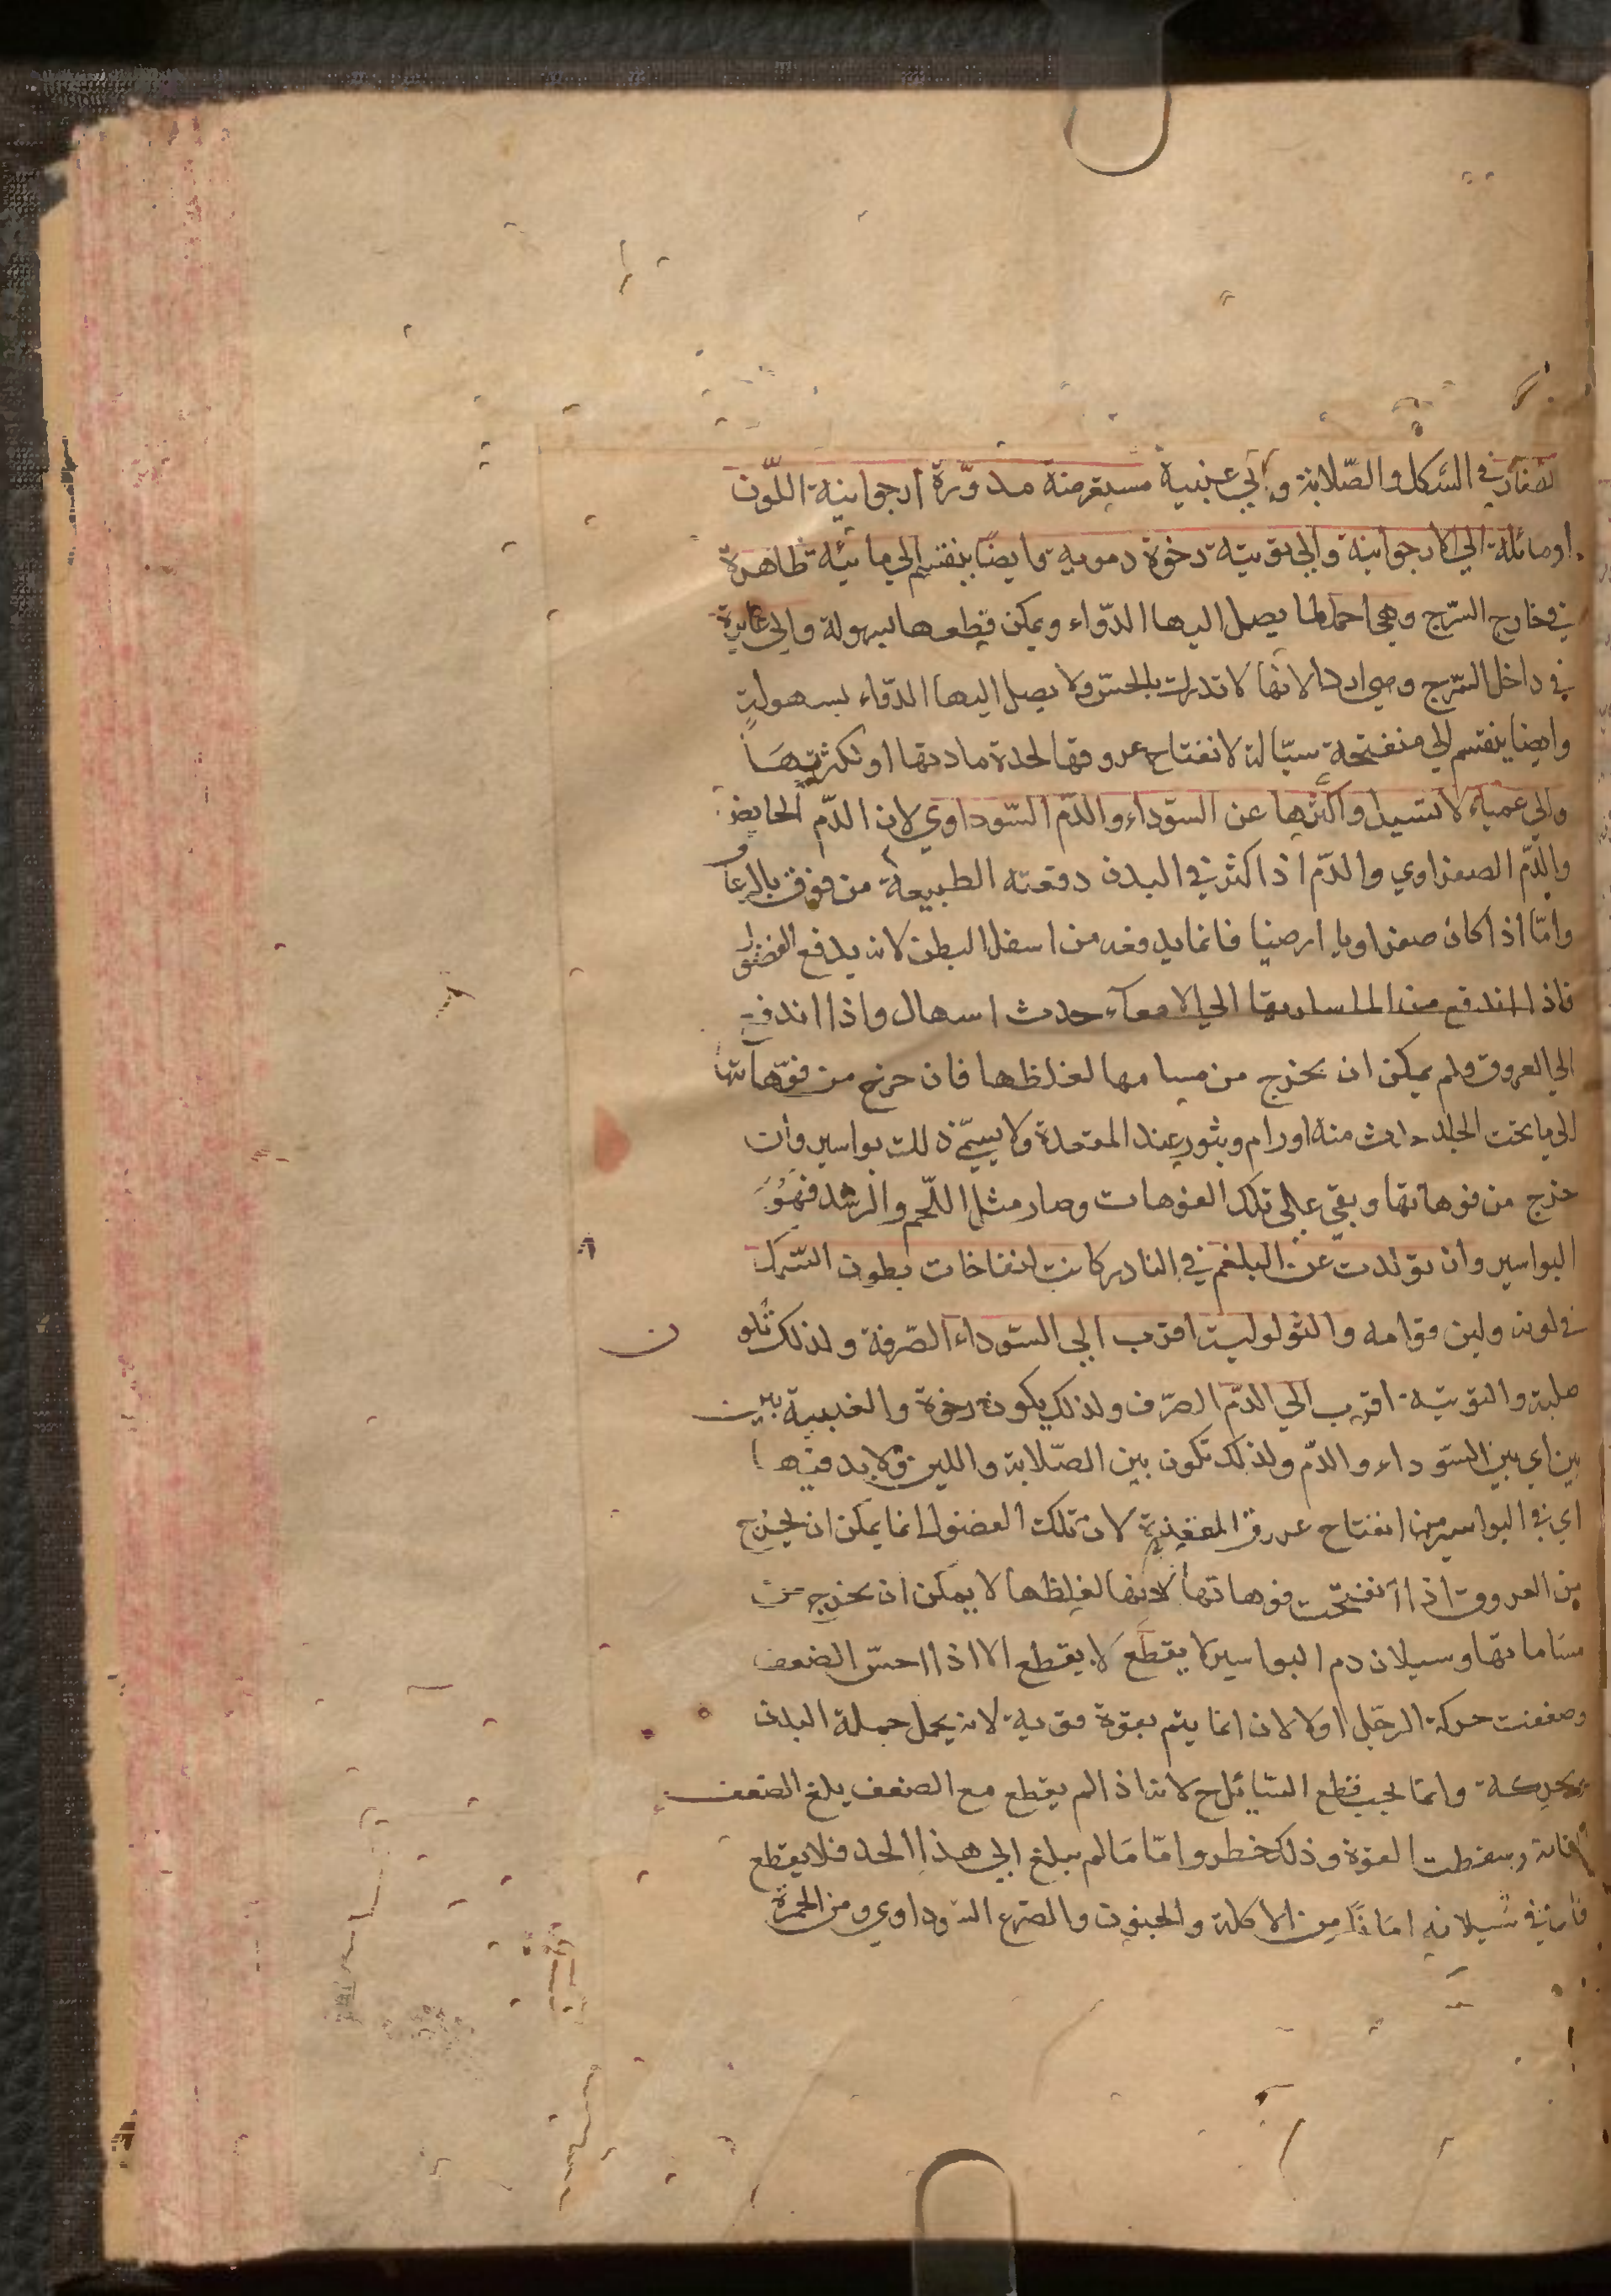 الصغار في الشكل والصّلابة والي عنبية مستعرضة مدوّرة ارجوانية اللّون
اومائلة الي الارجوانية والي توتيّة رخوة دموية وايضا ينقسم الي ماتئية ظاهرة
في خارج الشرج وهي احمد لما يصل اليها الدّواء ويمكن قطعها بسهولة والي غايرة
في داخل الشرج وهي اردا لانّها لا تدرك بالحسّ ولا يصل اليها الدّواء بسهولةٍ
وايضا ينقسم الي منفتحة سيّالة لانفتاح عروقها لحدة مادتها او لكثرتهَا
والي عمياء لا تسيل واكثرها عن السّوداء والدّم السّوداوي لان الدّم
والدّم الصفراوي والدّم اذا كثر في البدن دفعته الطبيعة من فوق بالرعا
وامّا اذا كان صفراويا ارضيا فانما يدفعه من اسفل البطن لانه يدفع الفضول
فاذا اندفع من الماساريقا الي الامعآء حدث اسهال واذا اندفع
الي العروق ولم يمكن ان يخرج من مسامها لغلظها فان خرج من فوّهاتها
الي ما تحت الجلد حدث منه اورام وبثور عند المقعدة ولا يسمّي ذلك بواسير وان
خرج من فوهاتها وبقي علي تلك الفوهات وصار مثل اللّحم والزّند فهُوَ
البواسير وان تولّدت عن البلغم في النادر كانت انفاخات بطون السّمك
في لونه ولين قوامه والثولوليت اقرب الي السّوداء الصّرفة ولذلك تكون
صلبة والتوتيّة اقرب الي الدّم الصّرف ولذلك يكون رخوة والعنبية بين
بين اي بين السّوداء والدّم ولذلك تكون بين الصّلابة واللين ولابد فيها
اي في البواسير من انفتاح عروق المقعدة لان تلك الفضول انما يمكن ان يخرج
من العروق اذا انفتحت فوهاتها لانها لغلظها لا يمكن ان يخرج من
مسَاماتها وسيلان دم البواسير لا يقطع الا اذا احسّ الضعف
وضعفت حركة الرجل اولا لان انما يتم بقوة قوية لانه يحمل جملة البدن
بحركة وانما يجب قطع السّايل ح لانه اذا لم يقطع مع الضعف يبلغ الضعف
وسقطت القوة وذلك خطر وامّا مَا لم يبلغ الي هذا الحد فلا يقطع
فان في سَيلانه امَانًا من الاكلة والجنون والصّرع السّوداوي ومن الحمرة